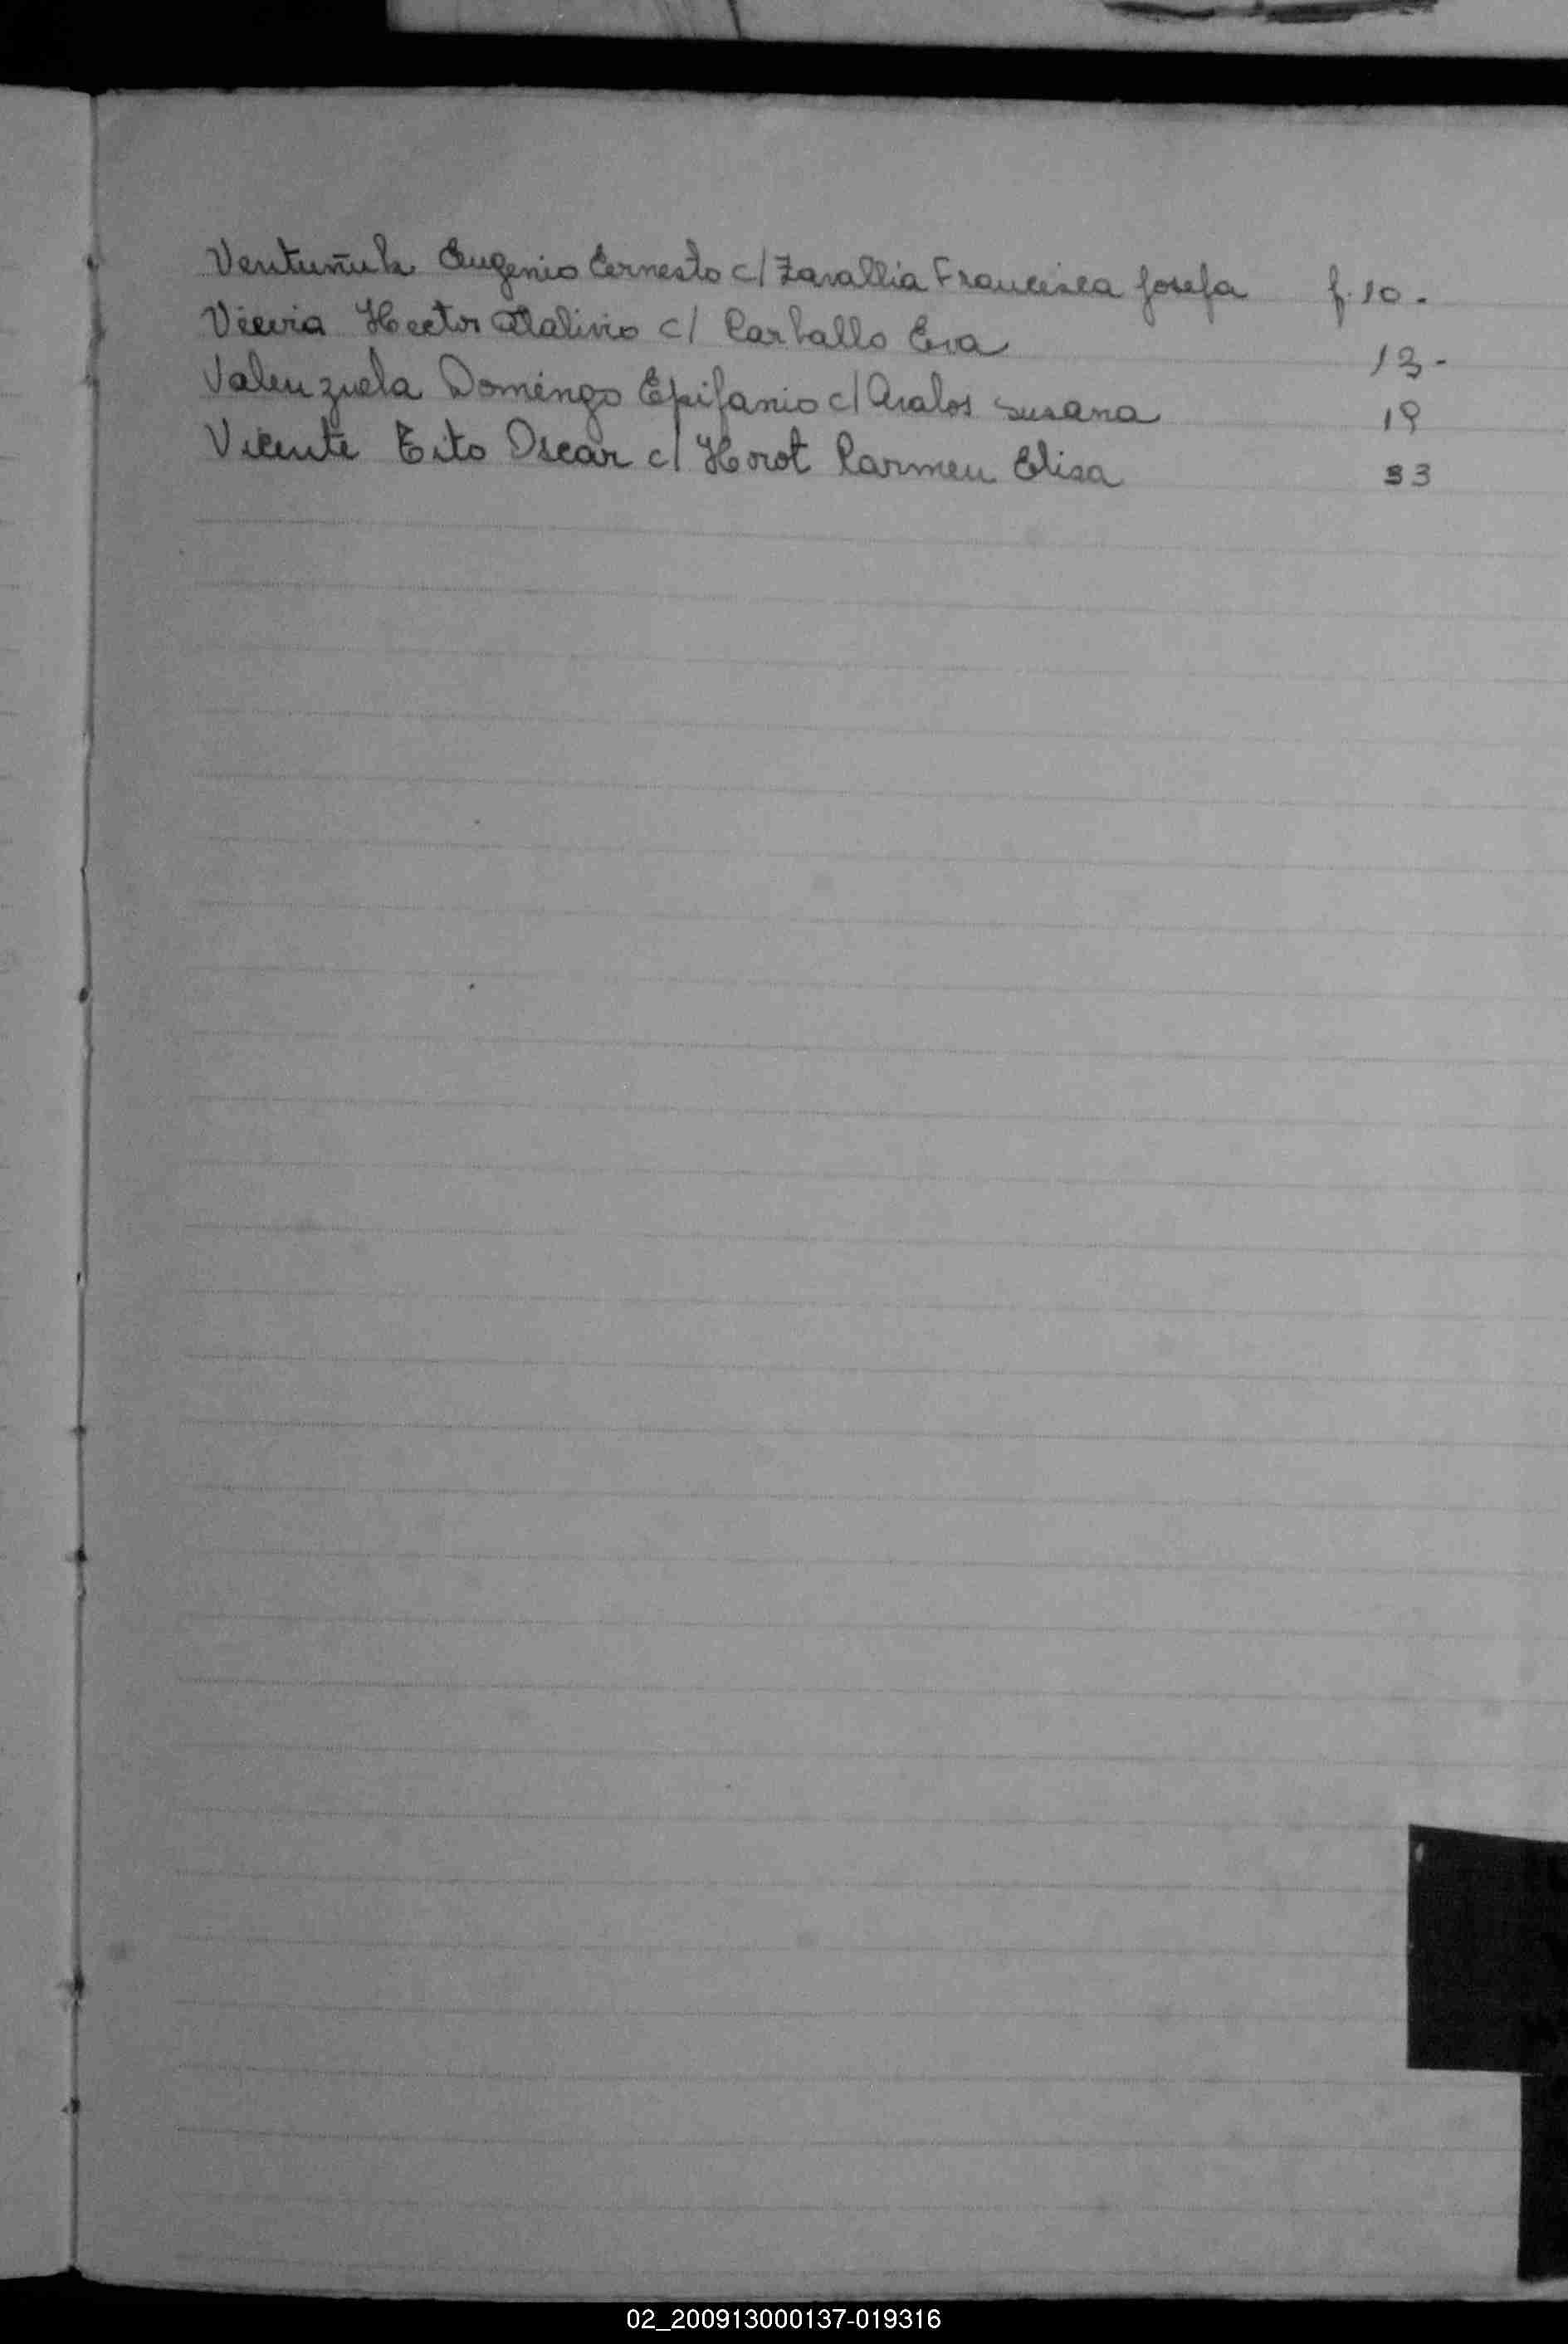 Eugenio Ernesto c/ Zavallia Francisca Josefa f. 10.
Hector c/ Carballo Eva 13-
Valenzuela Domingo Epifanio c/ Avalos Susana 19
Vicente Tito Oscar c/ Horot Carmen Elisa 33
02_200913000137-019316